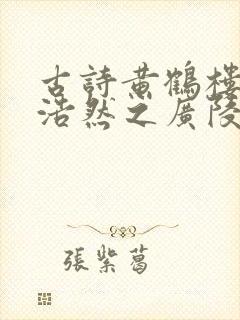 古詩黃鶴樓
浩然之廣陵
張紫葛